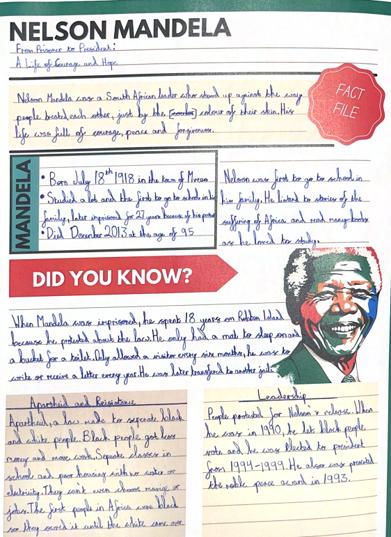 NELSON MANDELA
From Prisoner to President:
A Life of Courage and Hope
FACT
FILE
Nelson Mandela was a South African leader who stood up against the way
people treated each other, just by the colour of their skin. His
life was full of courage, peace and forgiveness.
MANDELA
• Born July 18th 1918 in the town of
• Studied a lot and the first to go to school in his
family, later imprisoned for 27 years because of his
• Died December 2013 at the age of 95
Nelson was first to go to school in
his family. He listened to stories of the
suffering of Africa and read many books
as he loved to study.
DID YOU KNOW?
When Mandela was imprisoned, he spent 18 years on Robben Island
because he protested about the law. He only had a mat to sleep on and
a bucket for a toilet. Only allowed a visitor every six months, he was to
write or receive a letter every year. He was later transferred to another
Apartheid and Resistance
Apartheid, a law made to separate black
and white people. Black people got less
money and more work. Separate classes in
school and poor housing with no water or
electricity. They can't even choose marriage or
jobs. The first people in Africa were black
so they owned it until the white came over
Leadership
People protested for Nelson's release. When
he was in 1990, he let black people
vote and he was elected to president
from 1994-1999. He also was
the noble peace in 1993.